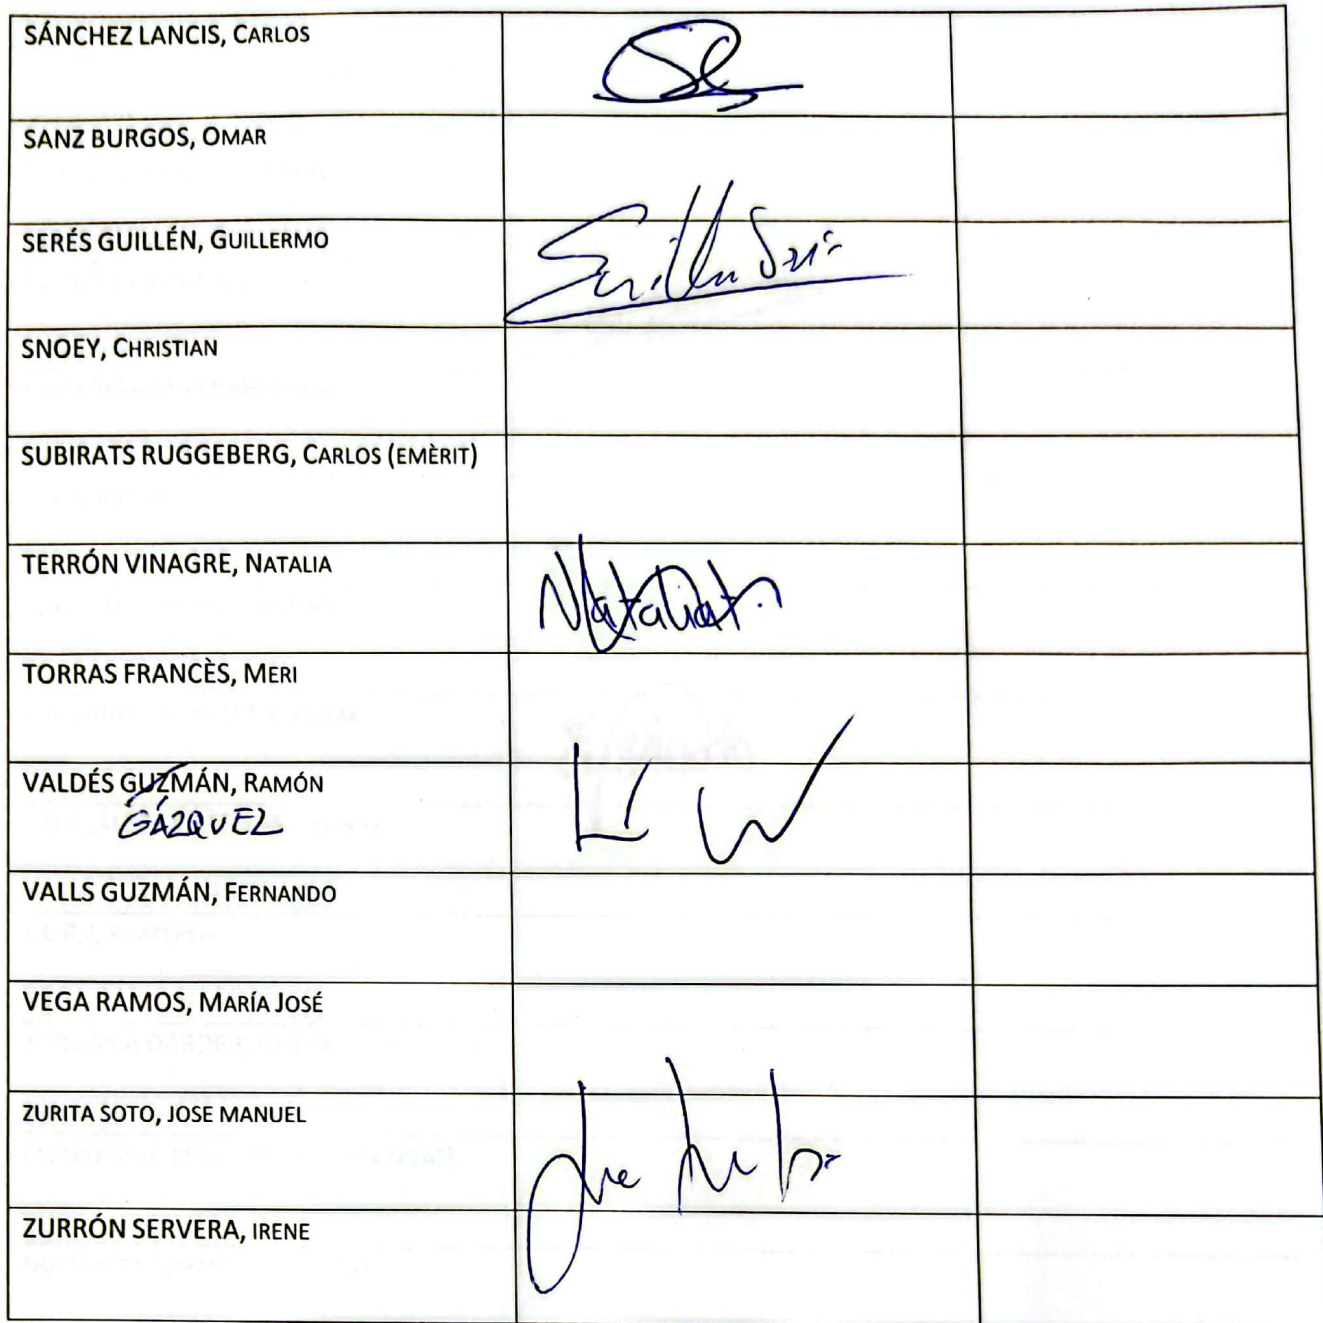 SÁNCHEZ LANCIS, CARLOS
SANZ BURGOS, OMAR
SERÉS GUILLÉN, GUILLERMO
SNOEY, CHRISTIAN
SUBIRATS RUGGEBERG, CARLOS (EMÈRIT)
TERRÓN VINAGRE, NATALIA
TORRAS FRANCÈS, MERI
VALDÉS GUZMÁN, RAMÓN
GÁZQUEZ
VALLS GUZMÁN, FERNANDO
VEGA RAMOS, MARÍA JOSÉ
ZURITA SOTO, JOSE MANUEL
ZURRÓN SERVERA, IRENE